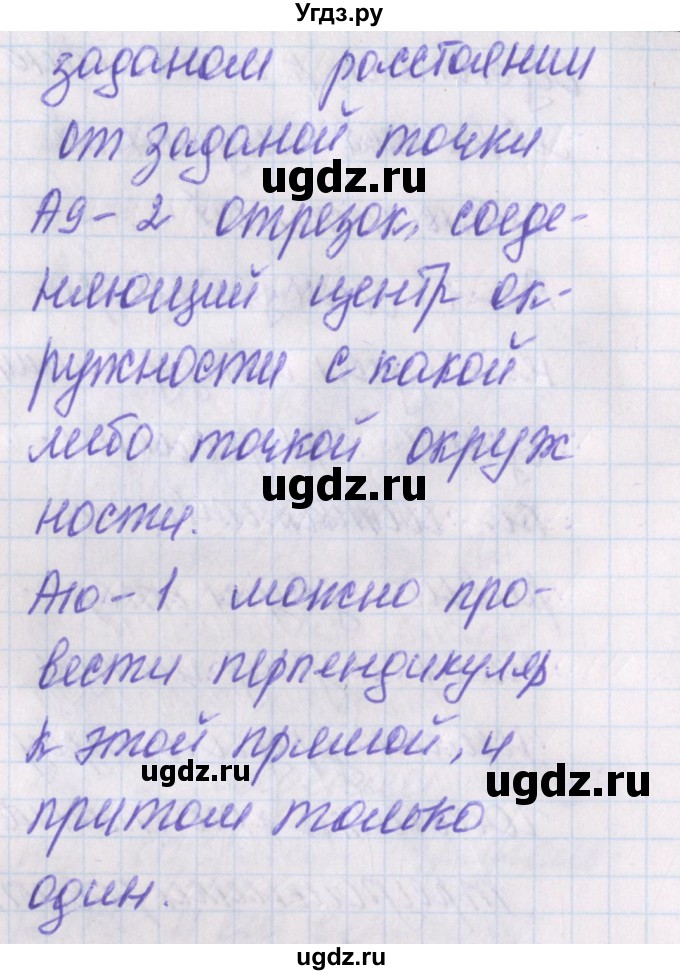 Угдз.ру
заданом расстоянии
от заданой точки
ugdz.ru
А9-2 отрезок, соеде-
няющий центр ок-
ружности с какой
либо точкой окруж
ugdz.ru
ности.
А10-1 можно про-
вести перпендикуляр
к этой прямой, и
ugdz.ru ugdz.ru
притом только
один.
ugdz.ru